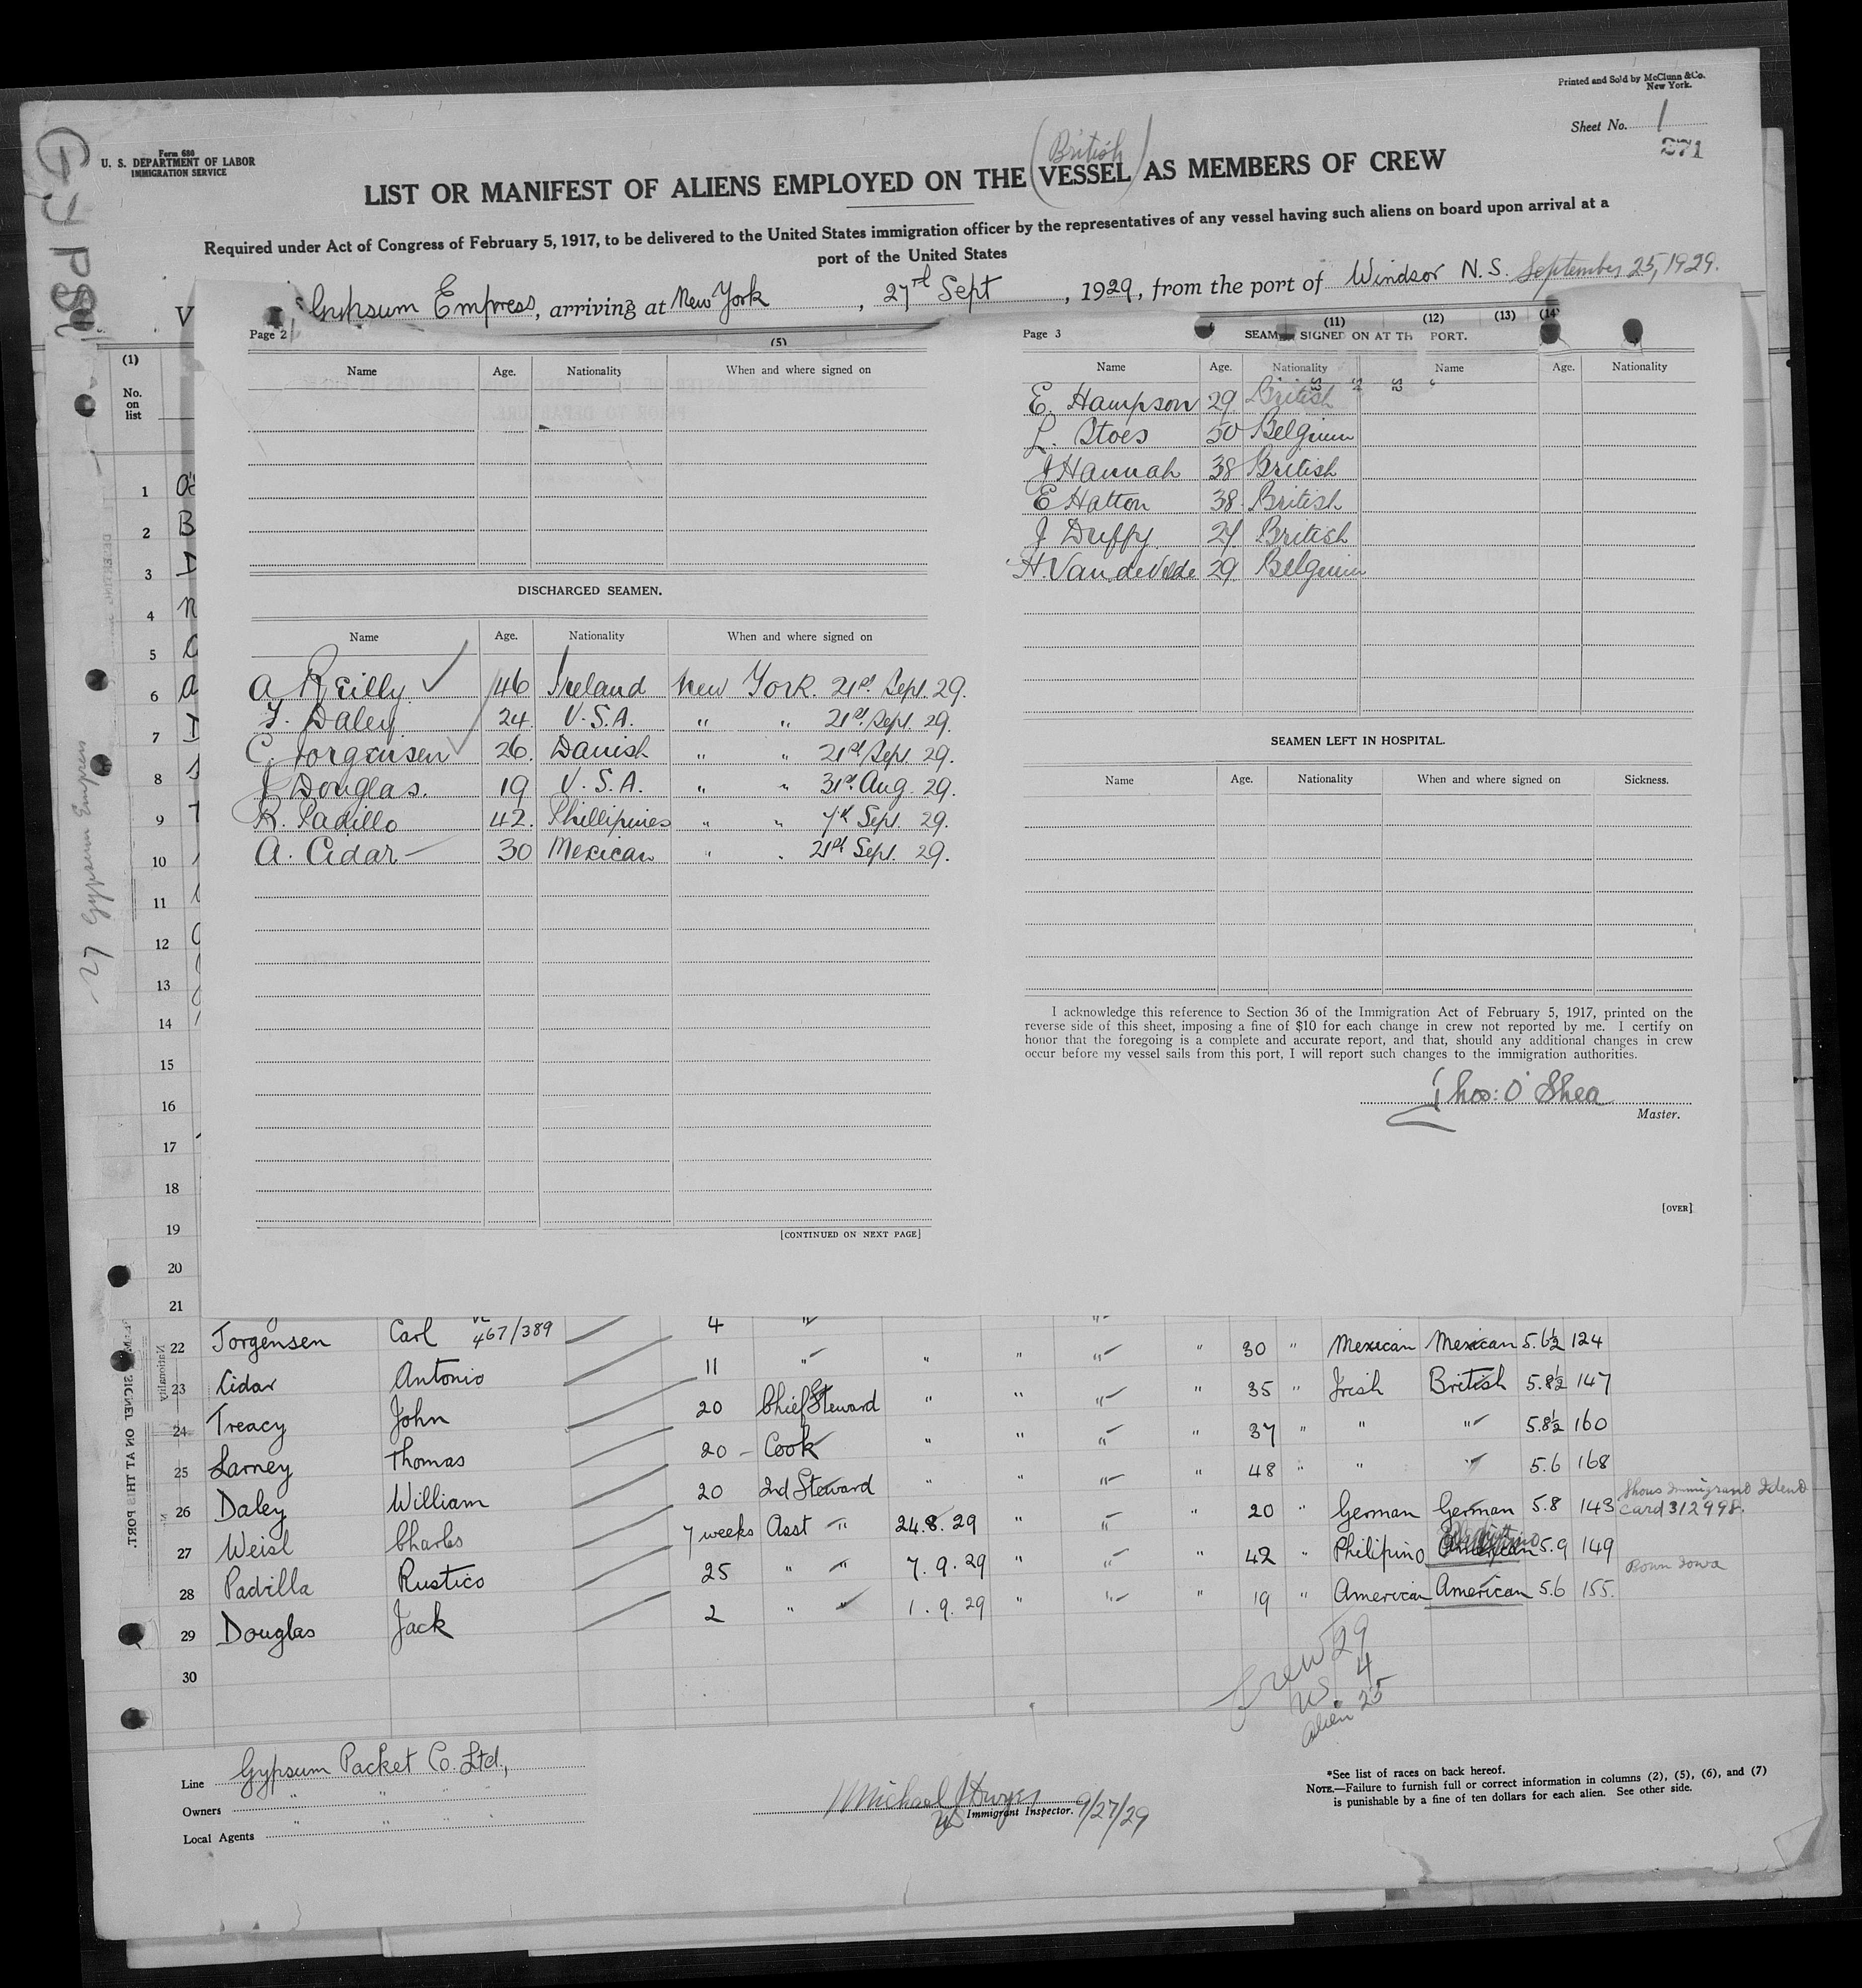 Printed and Sold by McClunn & Co.
New York.
Sheet No. 1
271
Form 680
U. S. DEPARTMENT OF LABOR
IMMIGRATION SERVICE
(British)
LIST OR MANIFEST OF ALIENS EMPLOYED ON THE VESSEL AS MEMBERS OF CREW
Required under Act of Congress of February 5, 1917, to be delivered to the United States immigration officer by the representatives of any vessel having such aliens on board upon arrival at a
port of the United States
V Gypsum Empress, arriving at New York, 27th Sept, 1929, from the port of Windsor N.S. September 25, 1929.
Page 2
(5)
Name Age. Nationality When and where signed on
DISCHARGED SEAMEN.
Name Age. Nationality When and where signed on
A Reilly 46 Ireland New York. 21st Sept. 29.
F. Daley 24. U.S.A. " " 21st Sept. 29.
C. Jorgensen 26. Danish " " 21st Sept. 29.
J Douglas. 19 U.S.A. " " 31st Aug. 29.
R. Padillo 42. Phillipines " " 7th Sept. 29.
A. Cidar 30 Mexican " " 21st Sept. 29.
[CONTINUED ON NEXT PAGE]
Page 3
(11) (12) (13) (14)
SEAMEN SIGNED ON AT TH PORT.
Name Age. Nationality Name Age. Nationality
E. Hampson 29. British
L. Stoes 50 Belgium
J Hannah 38 British
E Hatton 38. British
J Duffy 24 British
H. Van de Velde 29. Belgium
SEAMEN LEFT IN HOSPITAL.
Name Age. Nationality When and where signed on Sickness.
I acknowledge this reference to Section 36 of the Immigration Act of February 5, 1917, printed on the
reverse side of this sheet, imposing a fine of $10 for each change in crew not reported by me. I certify on
honor that the foregoing is a complete and accurate report, and that, should any additional changes in crew
occur before my vessel sails from this port, I will report such changes to the immigration authorities.
Thos: O'Shea
Master.
[OVER]
(1)
No.
on
list
1
2
3
4
5
6
7
8
9
10
11
12
13
14
15
16
17
18
19
20
21
22 Jorgensen Carl 467/389 4 "
23 Cidar Antonio 11 " " " " " 30 " Mexican Mexican 5.6½ 124
24 Treacy John 20 Chief Steward " " " " 35 " Irish British 5.8½ 147
25 Larney Thomas 20 - Cook " " " " 37 " " " 5.8½ 160
26 Daley William 20 2nd Steward " " " 48 " " " 5.6 168
27 Weisl Charles 7 weeks Asst " 24.8.29 " " " 20 " German German 5.8 143 Shows Immigrant Ident Card 312998.
28 Padilla Rustico 25 " " 7.9.29 " " 42 " Philipino 5.9 149
29 Douglas Jack 2 " " 1.9.29 " " " 19 " American American 5.6 155. Born Iowa
30
Crew 29
US 4
Alien 25
Line Gypsum Packet Co. Ltd.,
Owners " " "
Local Agents " " "
Michael J Dwyer
US Immigrant Inspector. 9/27/29
*See list of races on back hereof.
NOTE.—Failure to furnish full or correct information in columns (2), (5), (6), and (7)
is punishable by a fine of ten dollars for each alien. See other side.
27 Gypsum Empress